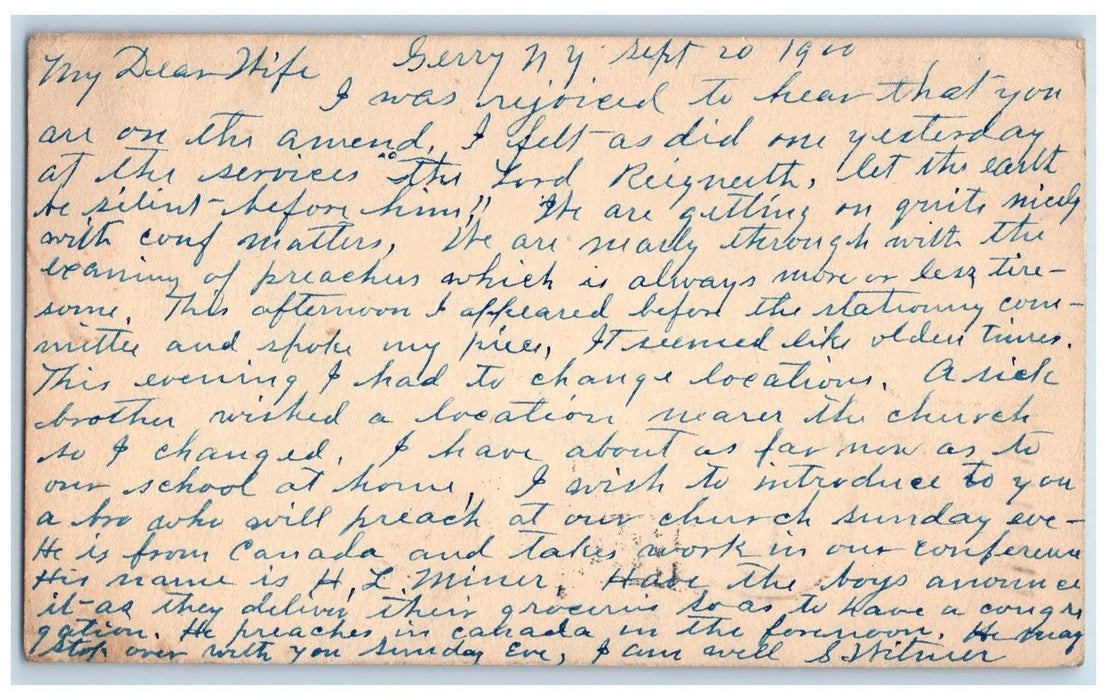 My Dear Wife Gerry N Y Sept 20 1900
I was rejoiced to hear that you
are on the amend, I felt as did one yesterday
at the services "The Lord Reigneth, let the earth
be silent before him!! We are getting on quite nicely
with conf matters, We are nearly through with the
examing of preachers which is always more or less tire-
some. This afternoon I appeared before the stationing com-
mittee and spoke my piece, It seemed like olden times.
This evening I had to change locations. A sick
brother wished a location nearer the church
so I changed. I have about as far now as to
our school at home, I wish to introduce to you
a bro who will preach at our church sunday eve-
He is from Canada and takes work in our conference
His name is H. L. Miner, Have the boys anounce
it as they deliver their groceries so as to have a congre
gation. He preaches in canada in the forenoon. He may
stop over with you Sunday Eve, I am well S Witmer